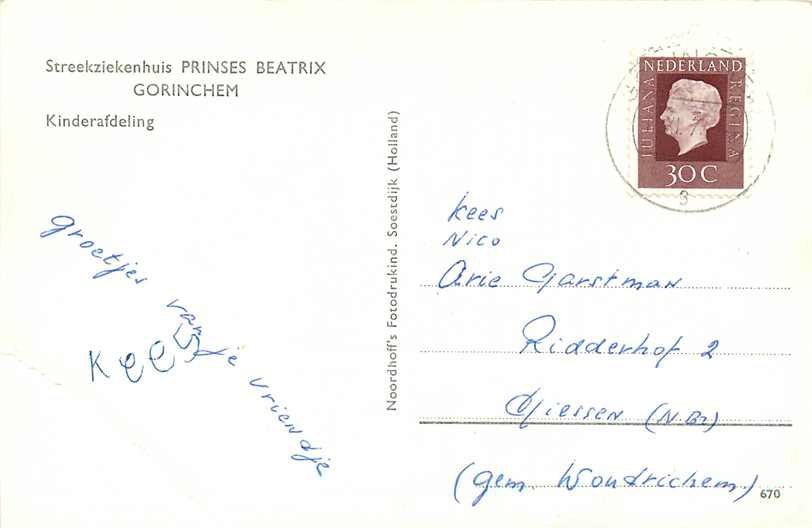 Streekziekenhuis PRINSES BEATRIX
GORINCHEM
Kinderafdeling
groetjes van je vriendje
Kees
Noordhoff's Fotodrukind. Soestdijk (Holland)
NEDERLAND
JULIANA
REGINA
30 C
3
Kees
Nico
Arie Garstman
Ridderhof 2
Giessen (N.Br)
(gem. Woudrichem)
670